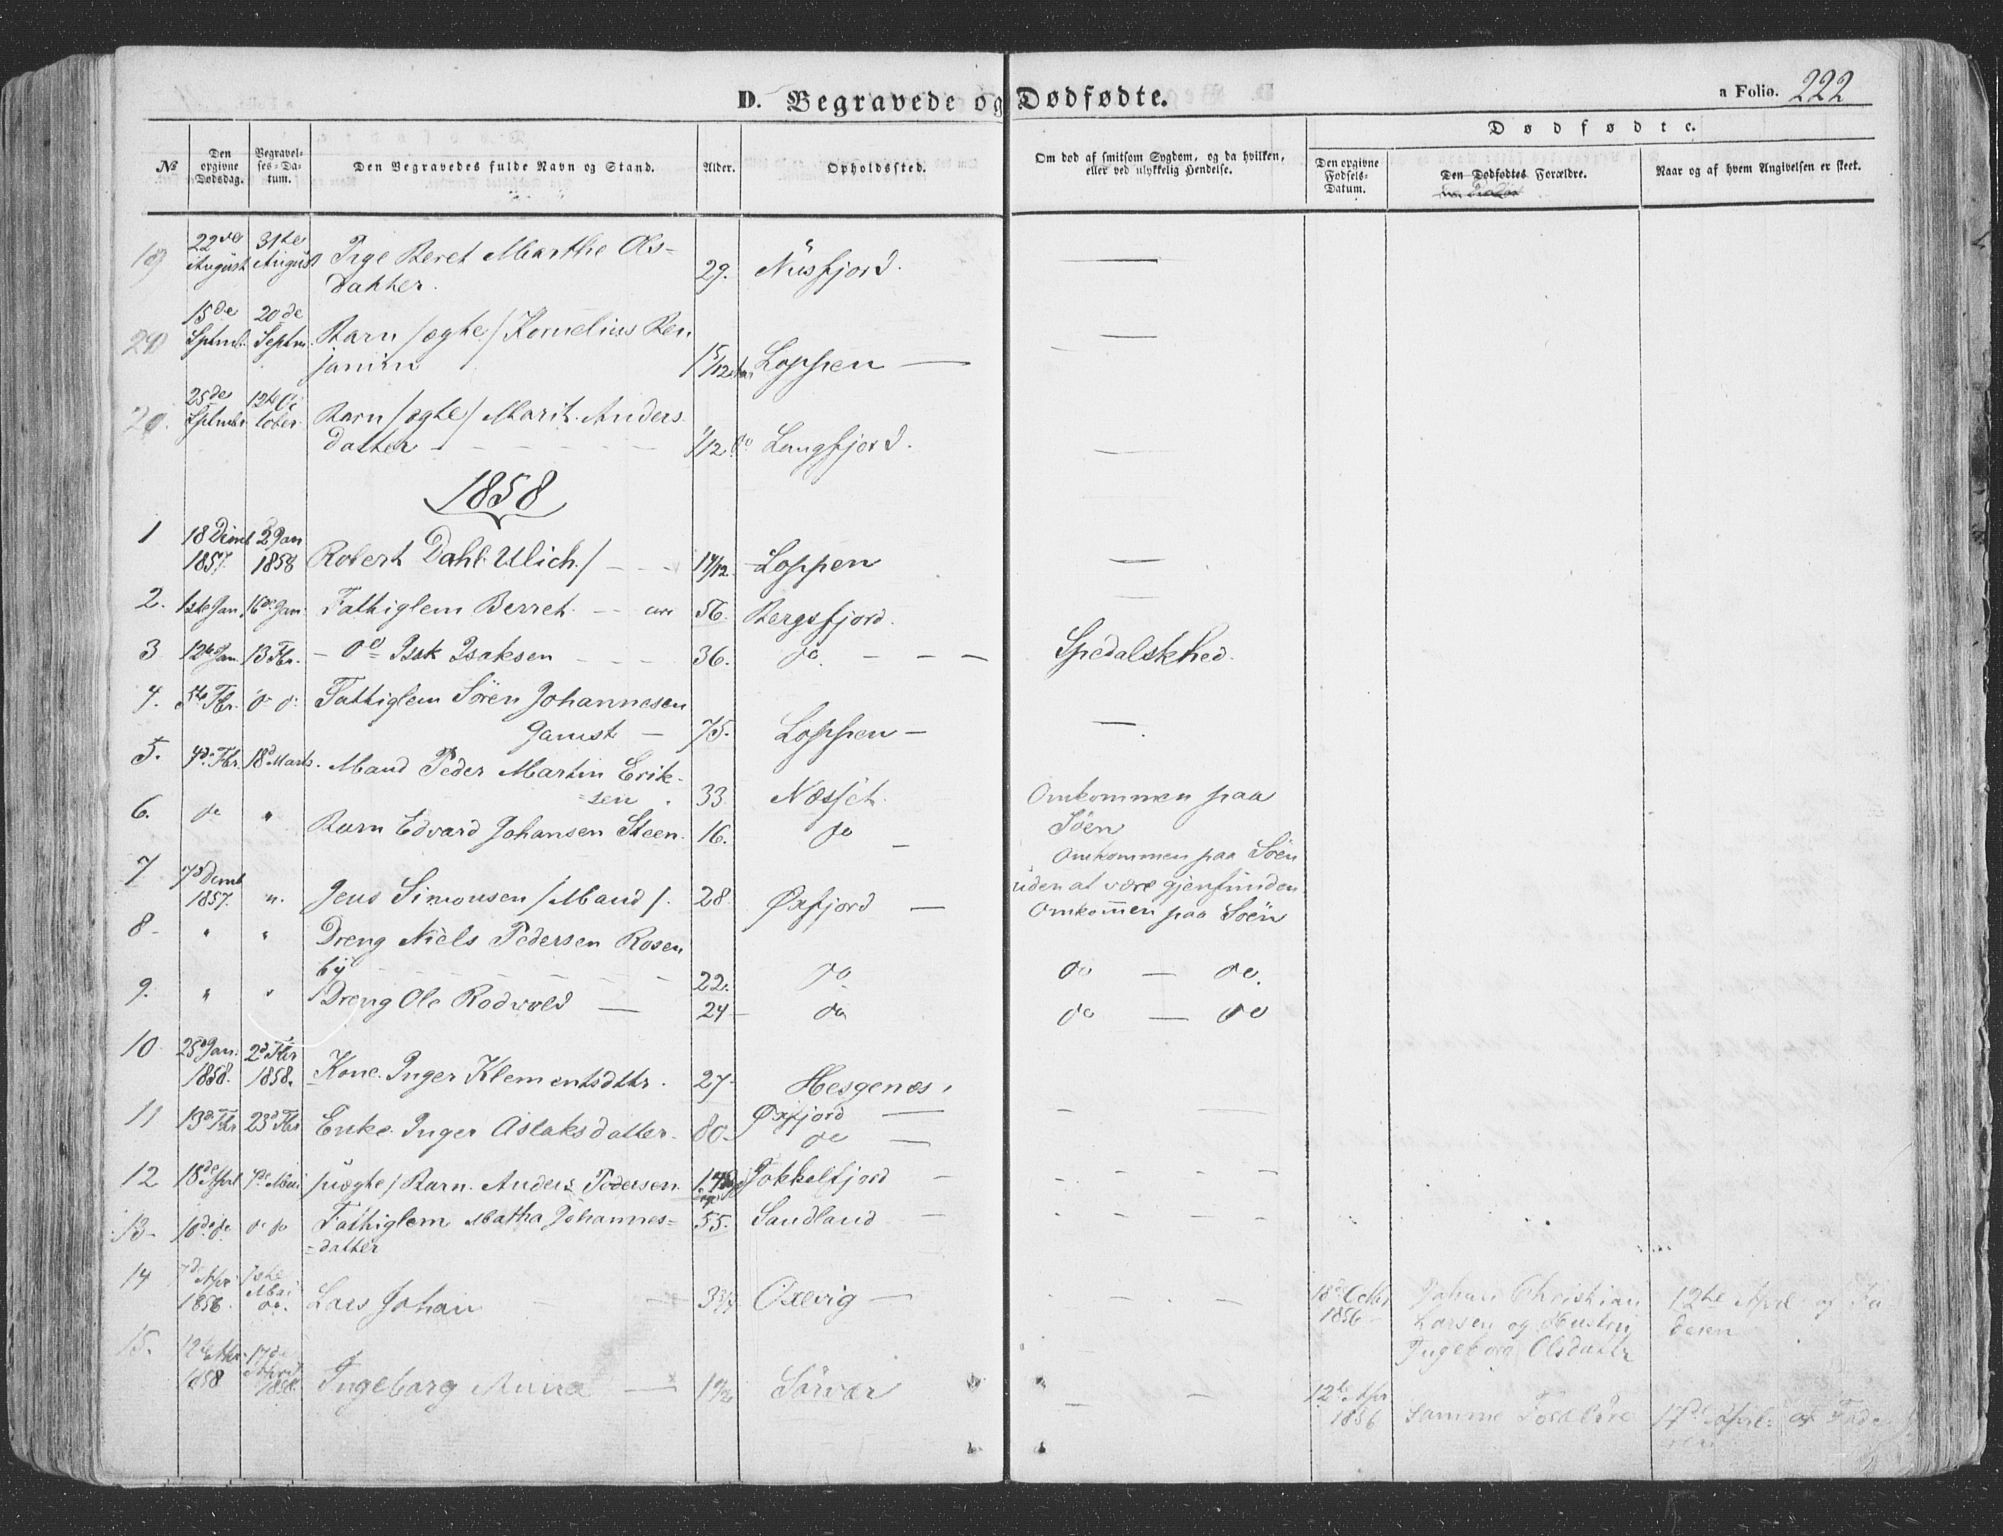 D. Begravede og Dødfødte.
a Folio. 222
№
Den opgivne Dødsdag.
Begravelses-Datum.
Den Begravedes fulde Navn og Stand.
Alder.
Opholdssted.
Om død af smitsom Sygdom, og da hvilken, eller ved ulykkelig Hendelse.
Dødfødte.
Den opgivne Fødsels-Datum.
Den Dødfødtes Forældre.
Naar og af hvem Angivelsen er skeet.
19 22de August 31te August Inge Beret Marthe Ols-
datter. 29. Nusfjord. —
20 15de Septmb. 20de Septm. Barn /ægte/ Kornelius Ben
jamin Loppen — —
25de Septmbr 12te October Barn /ægte/ Marit Anders
datter 1/12 do Langfjord. —
1858
1 18 Decmb 1857. 2 Jan 1858 Robert Dahl Ulich / Loppen —
2. 1ste Jan. 16de Jan. Fattiglem Berret 56. Bergsfjord.
3 12te Jan. 13 Fbr. — do Isak Isaksen 36. do. — — Spedalskhed.
4. 5te Fbr. do do Fattiglem Sören Johannesen
Gamst — 75. Loppen — —
5. 4de Fbr. 18d Marts. Mand Peder Martin Erik-
sen. 33. Næsset. Omkommen paa
Söen
6. do " Barn Edvard Johansen Steen. 16. do — Omkommen paa Söen
uden at være gjenfunden.
7 7d Decmb 1857. " Jens Simonsen /Mand/. 28. Øxfjord — Omkommen paa Söen
8 " " Dreng Niels Pedersen Rosen
by 22. do do — do.
9. " " Dreng Ole Rodvold — 24 — do do — do
10 25d Jan. 1858. 2d Fbr 1858. Kone Inger Klementsdttr. 27. Hesgenæs
Øxfjord —
11 13d Fbr 23d Fbr Enke Inger Aslaksdatter. 80. do — — —
12 18de Aprl 7d Mai /uægte/ Barn Anders Pedersen Jokkelfjord —
13. 10de do do do Fattiglem Matha Johannes-
datter 55. Sandland —
14 7d Apr 1858. 1ste Mai do. Lars Johan Oxevig — 18d Octbr 1856 Johan Christian
Larsen og Hustru
Ingeborg Olsdattr 12te Aprl af Fa
deren
15. 12te Apr. 1858 17de April 1858. Ingeborg Anna — Sörvær 12te Apr 1856 Samme Forældre 17d April af Fade
ren